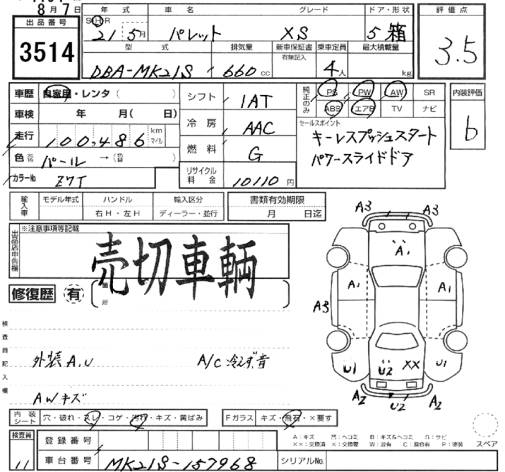 8月7日
出品番号 3514
年式 車名 グレード ドア・形状 評価点
SH 21/5月 パレット XS 5 箱 3.5
型式 排気量 新車保証書 乗車定員 最大積載量
有無記入
DBA-MK21S 660cc 4人 kg
車歴 自家用・レンタ( ) シフト 1AT 純正のみ PS PW AW SR 内装評価
ABS エアB TV ナビ
車検 年 月( 日) 冷房 AAC セールスポイント b
走行 100,486 km マイル キーレスプッシュスタート
燃料 G パワースライドドア
色 パール →( )
カラーNo Z7T リサイクル料金 10110円
輸入車 モデル年式 ハンドル 輸入区分 書類有効期限
右H・左H ディーラー・並行 月 日迄
※注意事項等記載
売切車輌
修復歴 有
検査員記入欄
外装A,U A/C 冷えず音
AWキズ
A3 A3
A1
A3 A1 A1 A3
U1 U2 XX U1
A2 U2 A2
内装シート 穴・破れ・スレ・コゲ・汚れ・キズ・黄ばみ Fガラス キズ・飛石・×要す
スペア
検査員 11 登録番号
車台番号 MK21S-157968 シリアルNo.